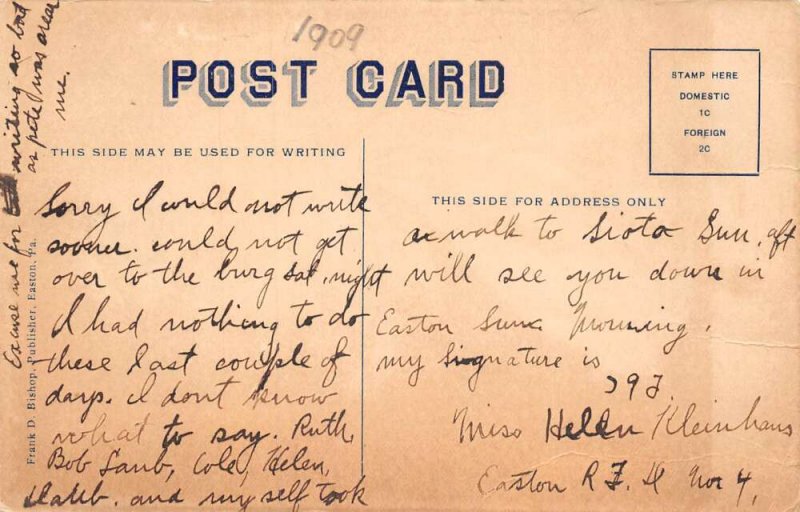 1909
POST CARD
STAMP HERE
DOMESTIC
1C
FOREIGN
2C
THIS SIDE MAY BE USED FOR WRITING
THIS SIDE FOR ADDRESS ONLY
Sorry I could not write
sooner. could not get
over to the burg Sat. night
I had nothing to do
these last couple of
days. I dont know
what to say. Ruth,
Bob Laub, Cole, Helen,
and my self took
a walk to Sun, aft
will see you down in
Easton Morning.
my Signature is
Miss Helen Kleinhans
Easton R F. D No 4,
Excuse me for writing so bad
as pete was
me.
Frank D. Bishop, Publisher, Easton, Pa.